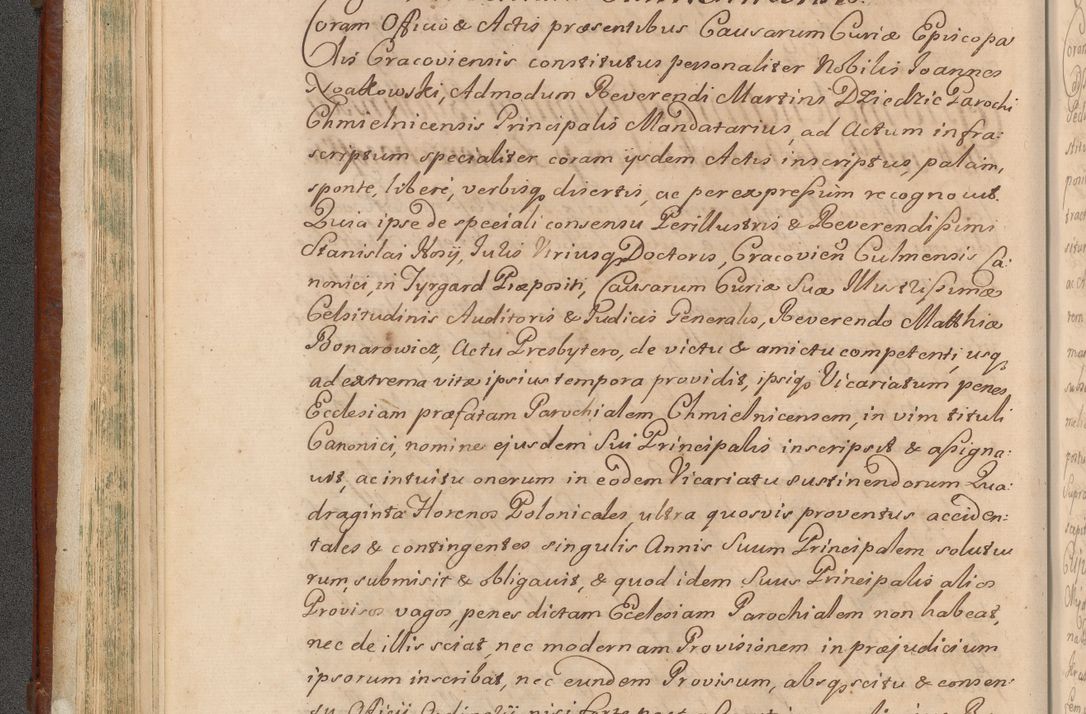 Coram Officio & Actis præsentibus Causarum Curiæ Episcopa
lis Cracoviensis constitutus personaliter Nobilis Ioannes
Noakowski, Admodum Reverendi Martini Dziedzic Parochi
Chmielnicensis Principalis Mandatarius, ad Actum infra:
scriptum specialiter coram ijsdem Actis inscriptus, palam,
sponte, liberé, verbisq disertis, ac per expreßum recognouit.
Quia ipse de speciali consensu Perillustris & Reverendißimi
Stanislai Hosij, Iuris Utriusq Doctoris, Cracovien Culmensis Ca:
nonici, in Tyrgard Præpositi, Causarum Curiæ Suæ Illustrißimæ
Celsitudinis Auditoris & Iudicis Generalis, Reverendo Matthiæ
Bonarowicz, Actu Presbytero, de victu & amictu competenti, usq
ad extrema vitæ ipsius tempora providit, ipsiq Vicariatum penes
Ecclesiam præfatam Parochialem Chmielnicensem, in vim tituli
Canonici, nomine ejusdem Sui Principalis inscripsit & aßigna:
uit, ac intuitu onerum in eodem Vicariatu sustinendorum Qua:
draginta Florenos Polonicales, ultra quosvis proventus acciden:
tales & contingentes singulis Annis Suum Principalem solutu
rum, submisit & obligauit, & quod idem Suus Principalis alios
Provisos vagos, penes dictam Ecclesiam Parochialem non habeat,
nec de illis sciat, nec modernam Provisionem in præjudicium
ipsorum inscribat, nec eundem Provisum, absq scitu & consen
su Officij